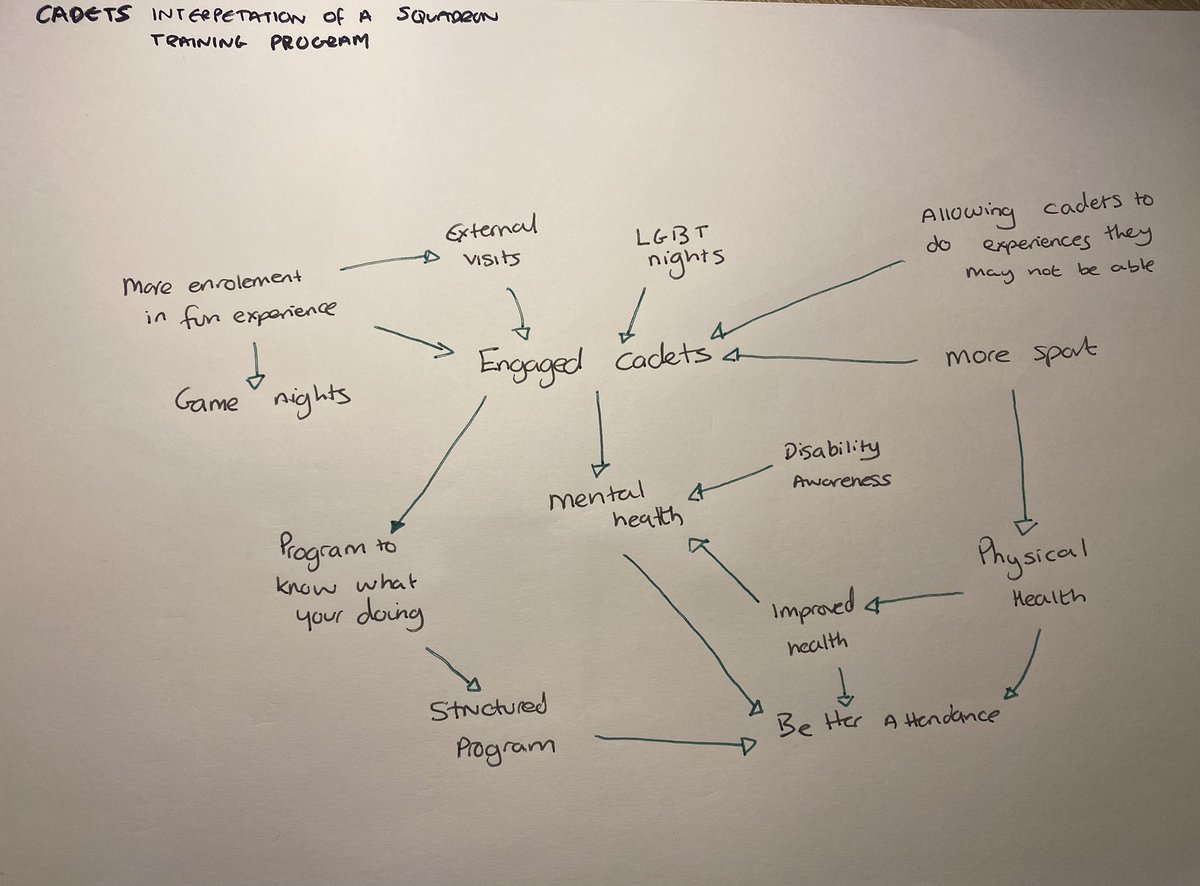 CADETS INTERPETATION OF A SQUADRON
TRAINING PROGRAM
External
visits
LGBT
nights
Allowing cadets to
do experiences they
may not be able
More enrolement
in fun experience
Game nights
Engaged cadets
more sport
Mental
health
Disability
Awareness
Program to
know what
your doing
Physical
Health
Improved
health
Structured
Program
Better Attendance